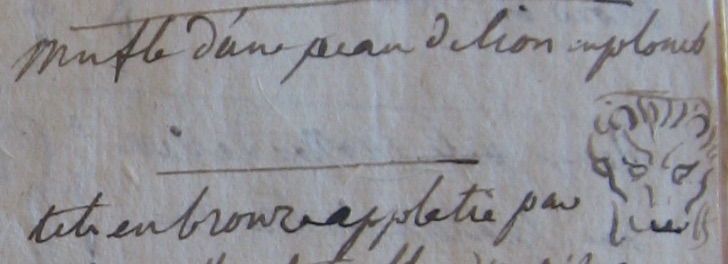 mufle d'une peau de lion en plomb
tete en bronze applatie par